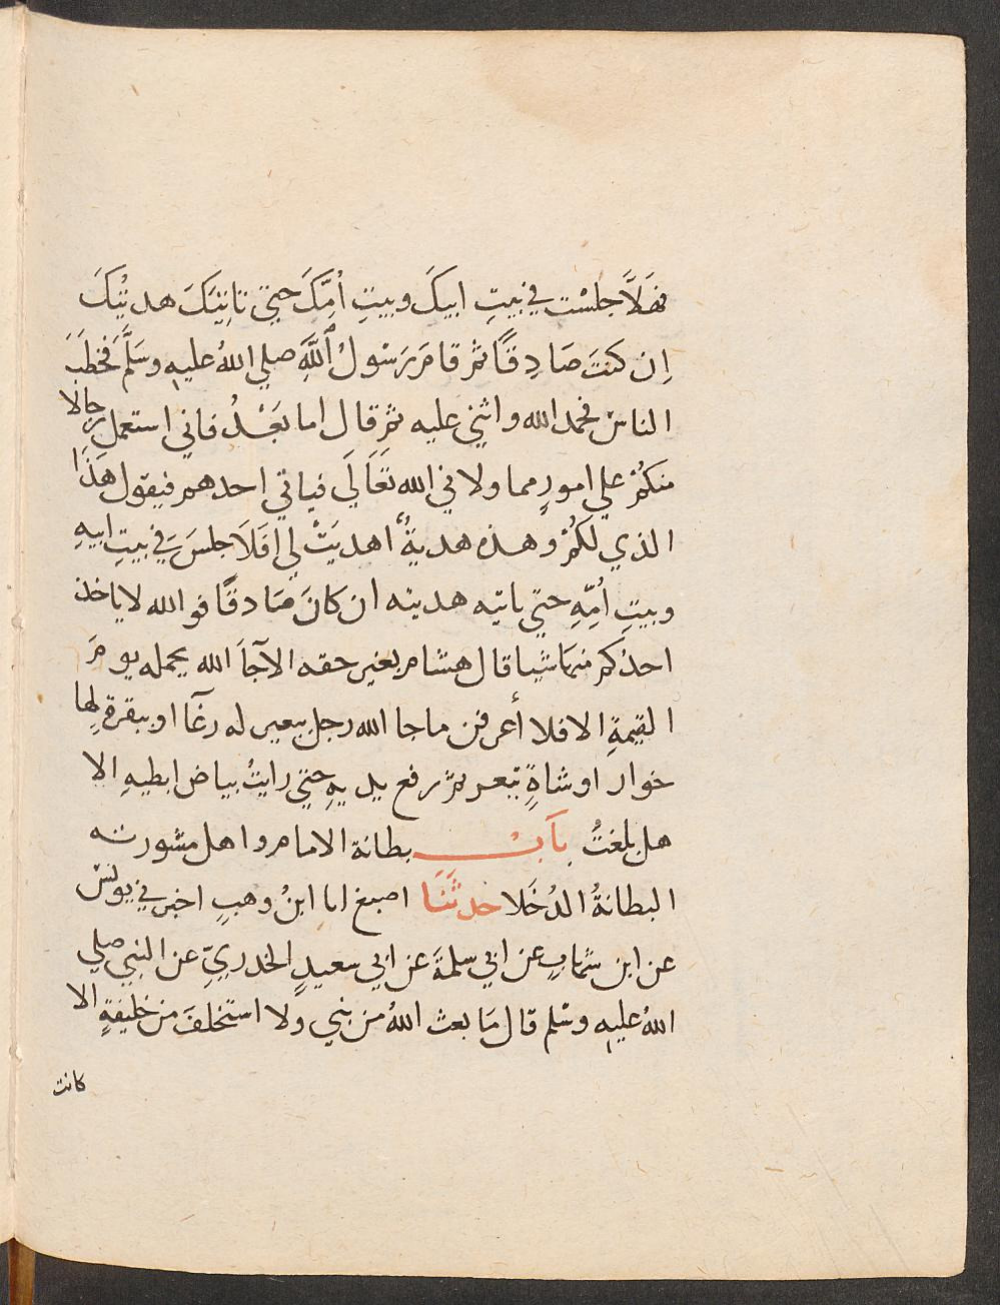 فهَلَّا جلسْت في بيتِ ابيكَ وبيتِ اُمِّكَ حتي تاتِيَكَ هديتُكَ
اِن كنتَ صَادِقًا ثم قامَ رَسُولُ اللَّهِ صلي اللهُ عليهِ وسَلَّمَ فخطَبَ
الناسَ فحمد الله واثني عليه ثمَ قال اما بَعْدُ فاني استعمل رجالا
منكُمْ علي امورٍ مما ولاني الله تَعَالَي فياتي احدهم فيقول هَذَا
الذي لكُمْ وهذه هديةٌ اهديَتْ لي افَلَا جلسَ في بيتِ ابيهِ
وبيتِ اُمِّهِ حتي ياتيه هديته ان كانَ صَادقًا فوالله لا ياخذ
احدُكم منهَا شيا قال هشام بغير حقه الا جآَ الله يحمله يومَ
القيمةِ الا فلا أعرفن ما جا الله رجل ببعير له رغآ او ببقرةٍ لها
خوار او شاةٍ تيعر ثمَ رفع يديهِ حتي رايتُ بياض ابطيهِ الا
هل بلغتُ بَابُ بطانة الامام واهل مشورته
البطانةُ الدُخَلا حَدثَنَا اصبغ انا ابنُ وهبٍ اخبرني يونسْ
عن ابن شهابٍ عن ابي سلمةَ عن ابي سعيدٍ الخدريِّ عن النبي صلي
اللهُ عليهِ وسَلم قال مَا بعث اللهُ من نبي ولا استخلفَ من خليفةٍ الا
كانت